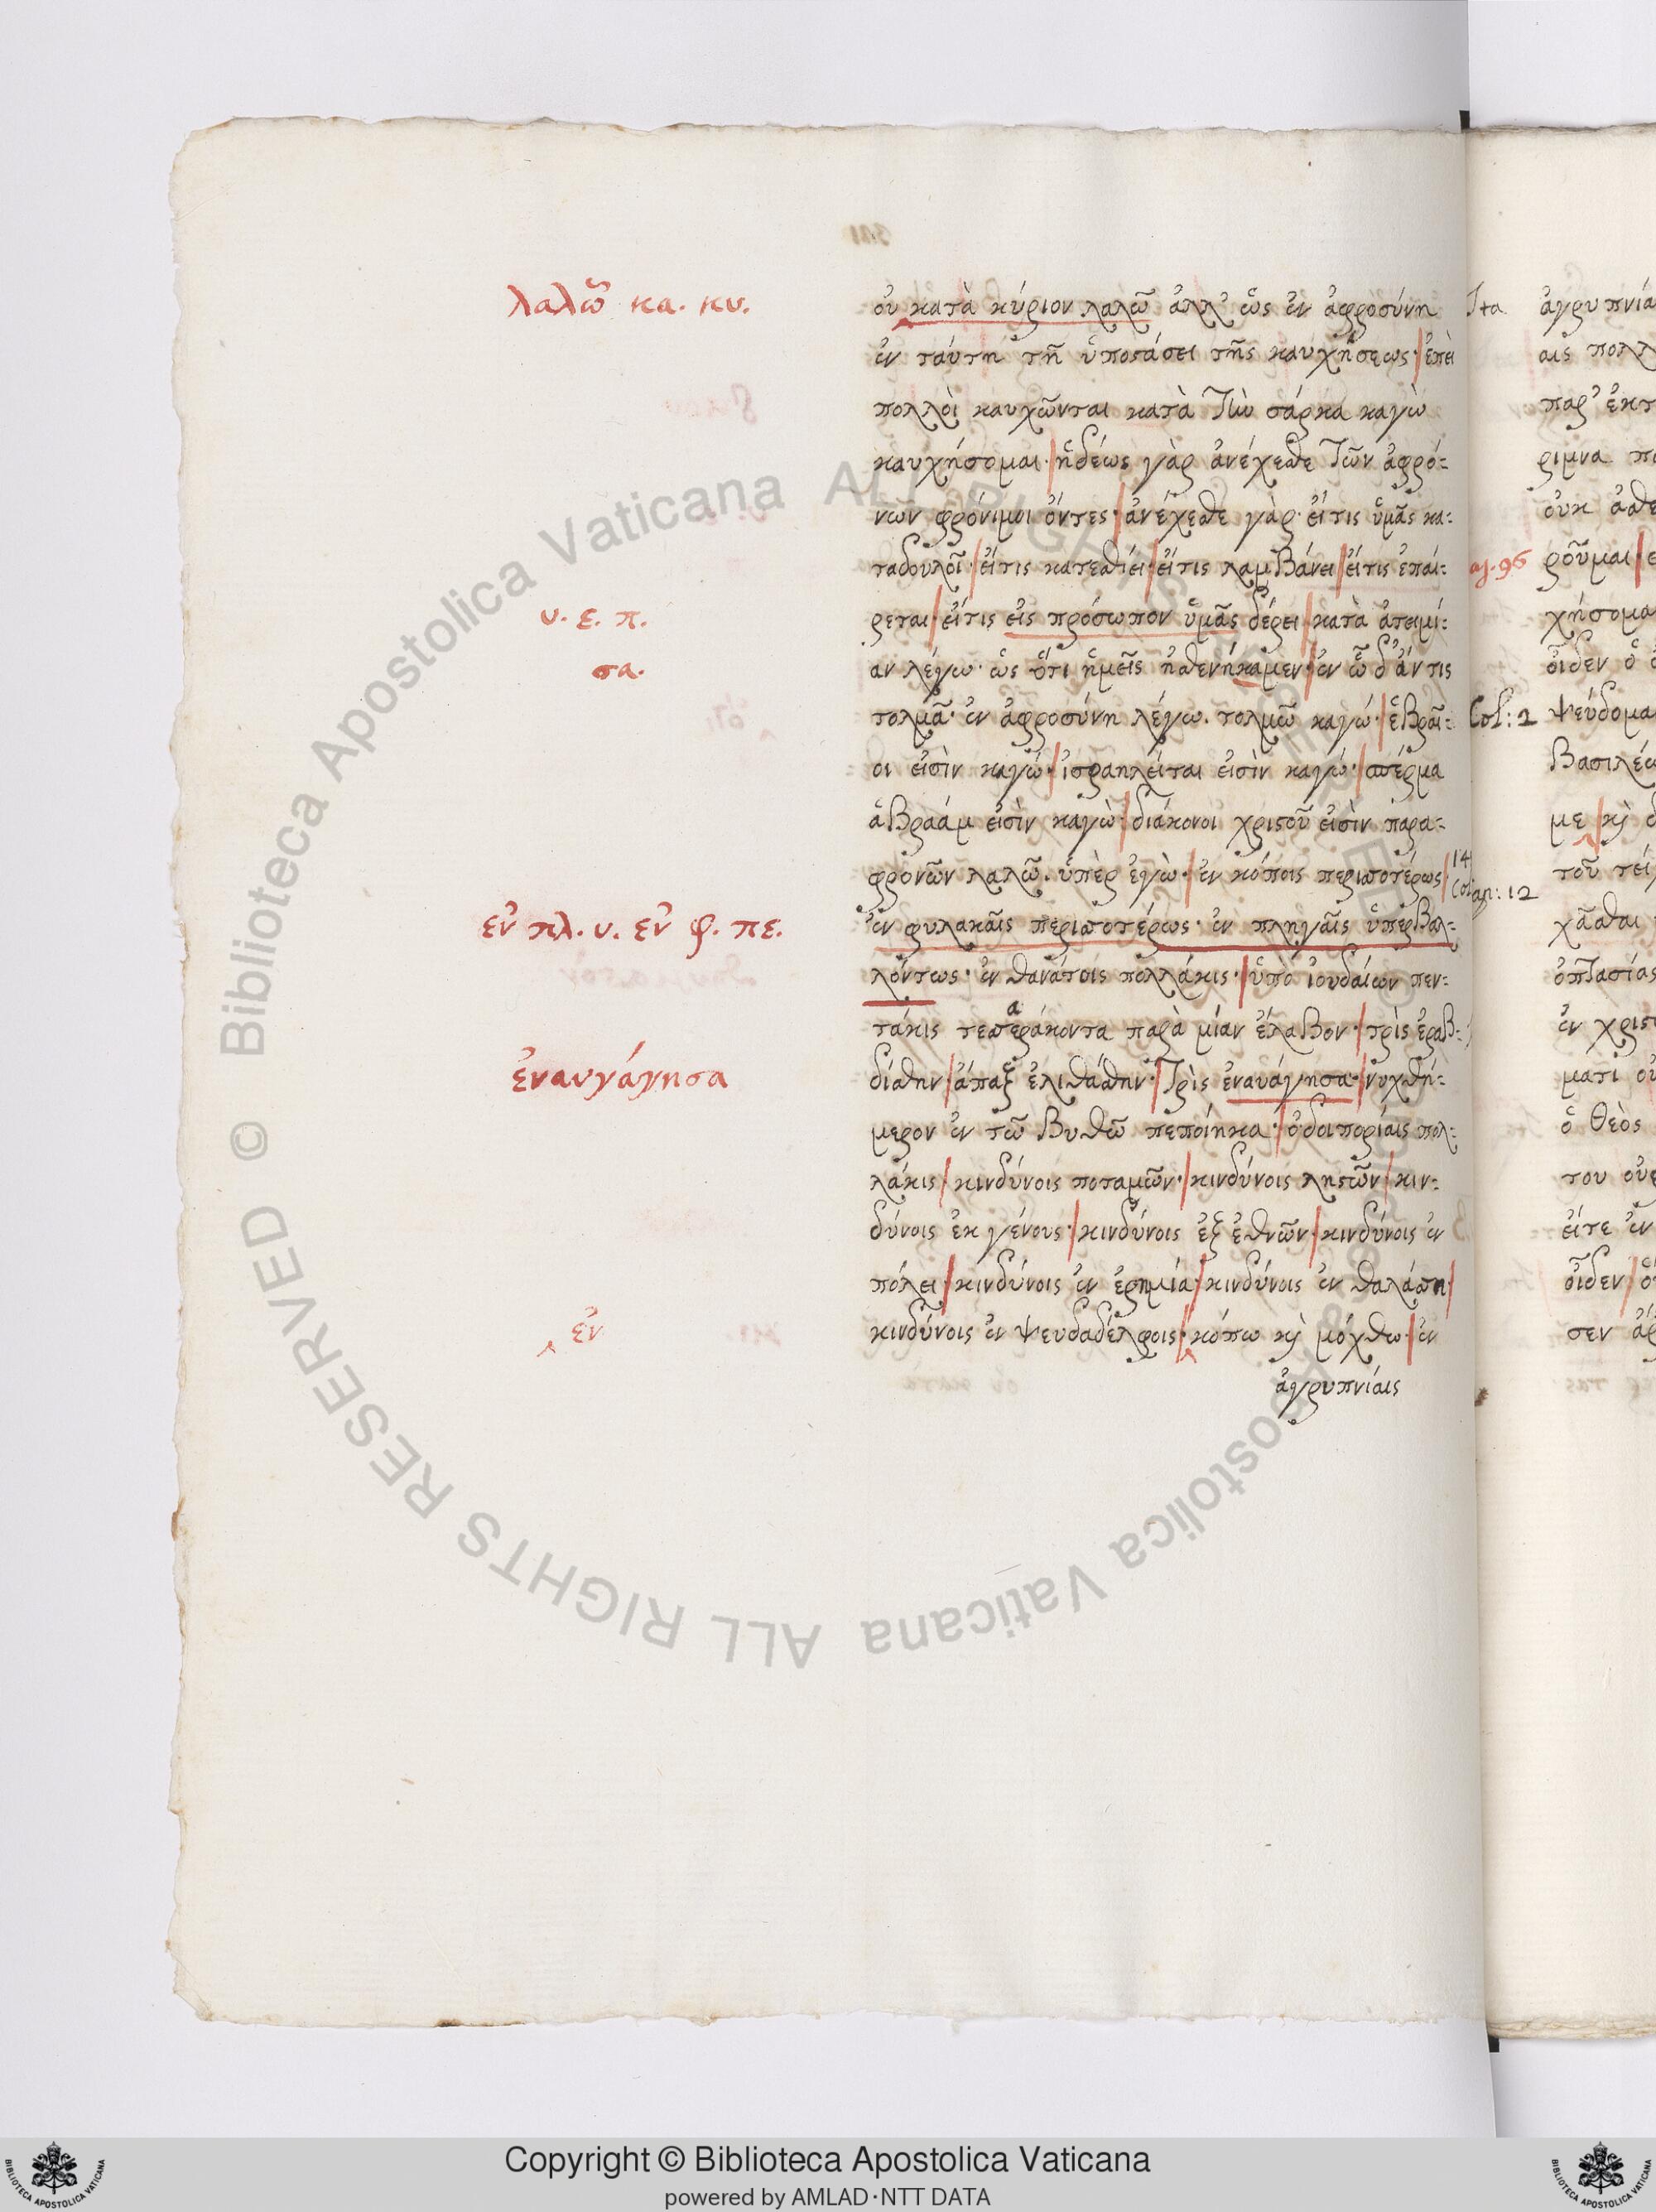 λαλῶ κα. κυ.
υ. ε. π.
σα.
εν πλ. υ. εν φ. πε.
ἐναυγάγησα
ἐν
οὐ κατὰ κύριον λαλῶ ἀλλ' ὡς ἐν ἀφροσύνη
ἐν ταύτη τῆ ὑποστάσει τῆς καυχήσεως· ἐπεὶ
πολλοὶ καυχῶνται κατὰ τὴν σάρκα καγὼ
καυχήσομαι· ἡδέως γὰρ ἀνέχεσθε τῶν ἀφρό=
νων φρόνιμοι ὄντες· ἀνέχεσθε γὰρ· εἴτις ὑμᾶς κα=
ταδουλοῖ· εἴτις κατεσθίει· εἴτις λαμβάνει εἴτις ἐπαί=
ρεται· εἴτις εἰς πρόσωπον ὑμᾶς δέρει κατὰ ἀτειμί=
αν λέγω· ὡς ὅτι ἡμεῖς ἠσθενήκαμεν· ἐν ὧ δ' ἄν τις
τολμᾶ· ἐν ἀφροσύνη λέγω. τολμῶ καγώ· ἑβραῖ=
οι εἰσὶν καγώ· ἰσραηλεῖται εἰσὶν καγώ· σπέρμα
ἀβραάμ εἰσὶν καγὼ· διάκονοι χριστοῦ εἰσὶν παρα=
φρονῶν λαλῶ. ὑπὲρ ἐγὼ· ἐν κόποις περισσοτέρως
ἐν φυλακαῖς περισσοτέρως· ἐν πληγαῖς ὑπερβαλ=
λόντως· ἐν θανάτοις πολλάκις· ὑπὸ ἰουδαίων πεν=
α
τάκις τεσσεράκοντα παρὰ μίαν ἔλαβον· τρὶς ἐραβ=
δίσθην· ἅπαξ ἐλιθάσθην· τρὶς ἐναυάγησα· νυχθή=
μερον ἐν τῶ βυθῶ πεποίηκα· ὁδοιπορίαις πολ=
λάκις· κινδύνοις ποταμῶν· κινδύνοις ληστῶν κιν=
δύνοις ἐκ γένους· κινδύνοις ἐξ ἐθνῶν· κινδύνοις ἐν
πόλει· κινδύνοις ἐν ἐρημία· κινδύνοις ἐν θαλάσση·
κινδύνοις ἐν ψευδαδέλφοις· κόπω κὶ μόχθω· ἐν
ἀγρυπνίαις
Ita
96
Col: 2
14
12
ἀγρυπνία
αις πολλ
παρ' ἐκτ
ριμνα
οὐκ ἀσθε
ροῦμαι· ε
χήσομα
οἶδεν ὁ
ψεύδομα
βασιλέω
με κὶ
τοῦ τεί
χᾶσθαι
ὀπτασίας
ἐν χρισ
ματι οὐ
ὁ θεὸς
του οὐ
εἴτε ἐν
οἶδεν
σεν
Copyright © Biblioteca Apostolica Vaticana
powered by AMLAD·NTT DATA
© Biblioteca Apostolica Vaticana ALL RIGHTS RESERVED